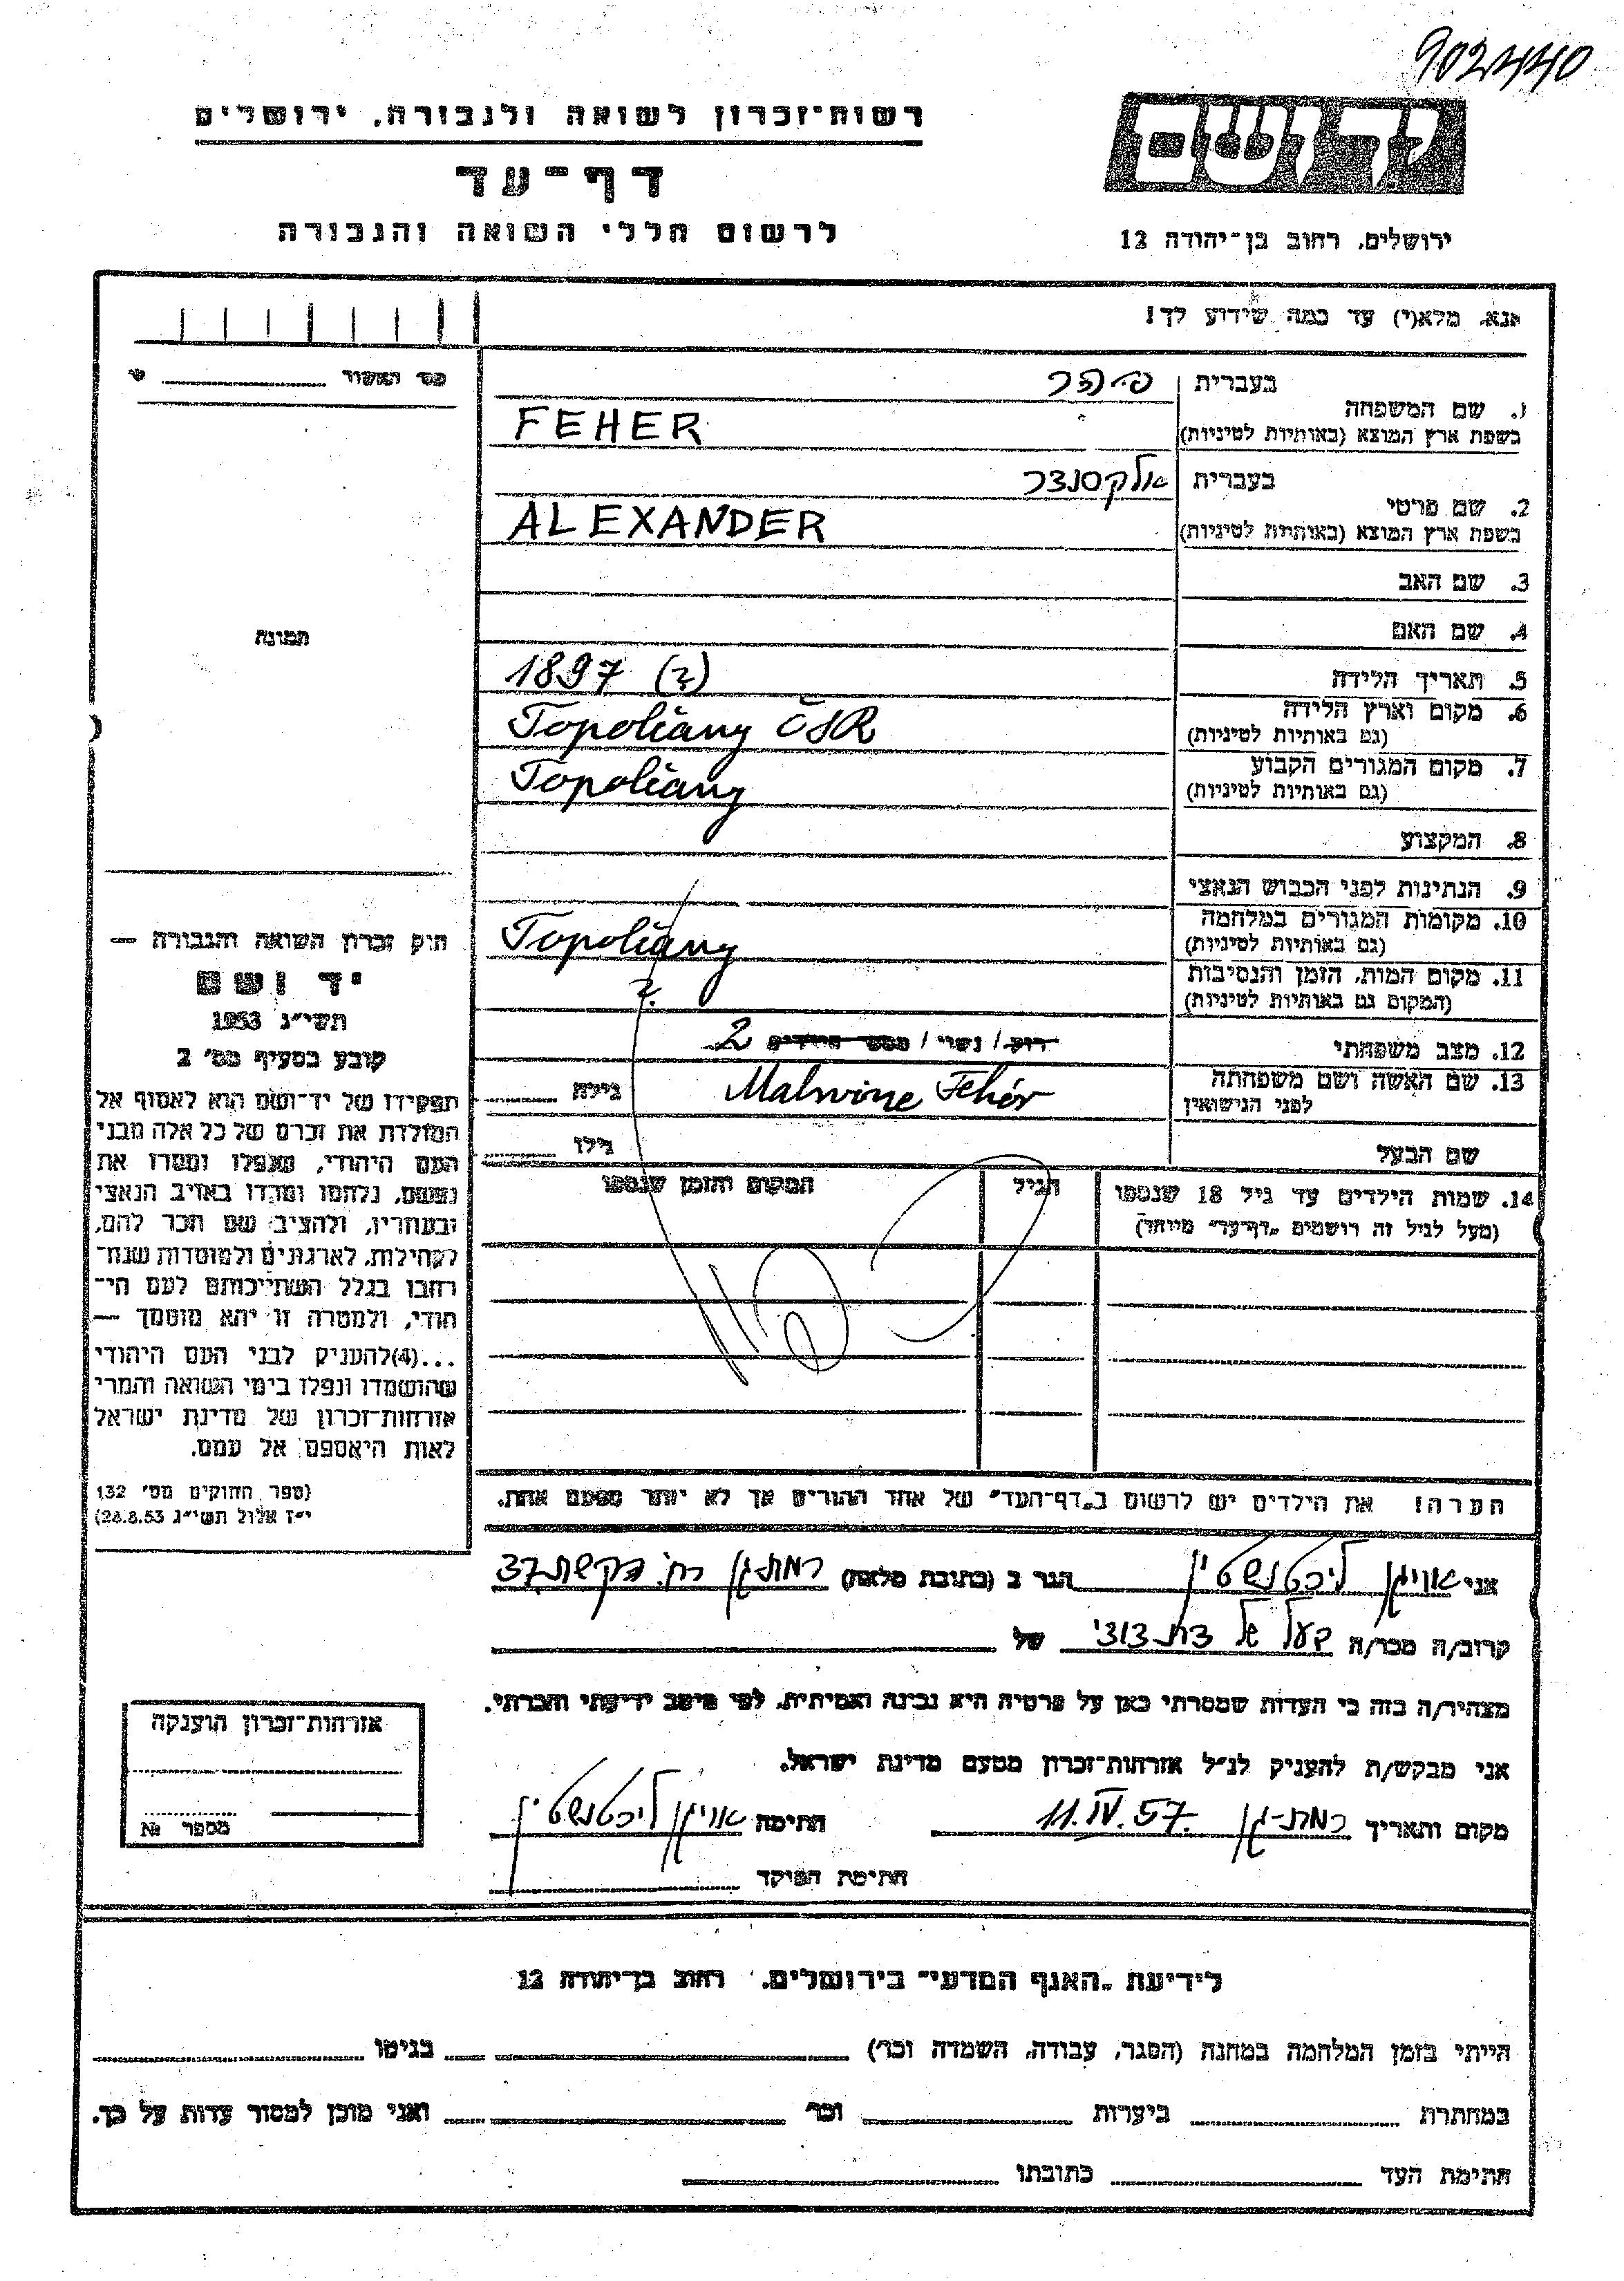 902440
יד ושם
רשות־זכרון לשואה ולגבורה, ירושלים
דף־עד
לרשום חללי השואה והגבורה
ירושלים, רחוב בן־יהודה 12
אנא, מלא(י) עד כמה שידוע לך!
מס' האשור
1. שם המשפחה
בעברית פהר
בשפת ארץ המוצא (באותיות לטיניות) FEHER
2. שם פרטי
בעברית אלקסנדר
בשפת ארץ המוצא (באותיות לטיניות) ALEXANDER
3. שם האב
4. שם האם
5. תאריך הלידה 1897 (?)
6. מקום וארץ הלידה (גם באותיות לטיניות) Topoľčany ČSR
7. מקום המגורים הקבוע (גם באותיות לטיניות) Topoľčany
8. המקצוע
9. הנתינות לפני הכבוש הנאצי
10. מקומות המגורים במלחמה (גם באותיות לטיניות) Topoľčany
11. מקום המות, הזמן והנסיבות (המקום גם באותיות לטיניות) ?
12. מצב משפחתי רוק/ נשוי / מספר הילדים 2
13. שם האשה ושם משפחתה לפני הנישואין Malwine Fehér גילה
שם הבעל גילו
14. שמות הילדים עד גיל 18 שנספו (מעל לגיל זה רושמים „דף־עד" מיוחד) הגיל המקום והזמן שנספו
הערה! את הילדים יש לרשום ב„דף־העד" של אחד ההורים אך לא יותר מפעם אחת.
תמונה
חוק זכרון השואה והגבורה —
יד ושם
תשי"ג 1953
קובע בסעיף מס' 2
תפקידו של יד־ושם הוא לאסוף אל
המולדת את זכרם של כל אלה מבני
העם היהודי, שנפלו ומסרו את
נפשם, נלחמו ומרדו באויב הנאצי
ובעוזריו, ולהציב שם וזכר להם,
לקהילות, לארגונים ולמוסדות שנח־
רבו בגלל השתייכותם לעם הי־
הודי, ולמטרה זו יהא מוסמך —
...(4)להעניק לבני העם היהודי
שהושמדו ונפלו בימי השואה והמרי
אזרחות־זכרון של מדינת ישראל
לאות היאספם אל עמם.
(ספר החוקים מס' 132,
י"ז אלול תשי"ג 28.8.53)
אני אויגן ליכטנשטין הגר ב (כתובת מלאה) רמת־גן רח. הקשת 37
קרוב/ה מכר/ה בעל של בת דודי של
מצהיר/ה בזה כי העדות שמסרתי כאן על פרטיה היא נכונה ואמיתית, לפי מיטב ידיעתי והכרתי.
אני מבקש/ת להעניק לנ"ל אזרחות־זכרון מטעם מדינת ישראל.
מקום ותאריך רמת־גן 11.IV.57. חתימה אויגן ליכטנשטין
חתימת הפוקד
אזרחות־זכרון הוענקה
מספר №
לידיעת „האגף המדעי" בירושלים, רחוב בן־יהודה 12
הייתי בזמן המלחמה במחנה (הסגר, עבודה, השמדה וכר') בגיטו
במחתרת ביערות וכר' ואני מוכן למסור עדות על כך.
חתימת העד כתובתו